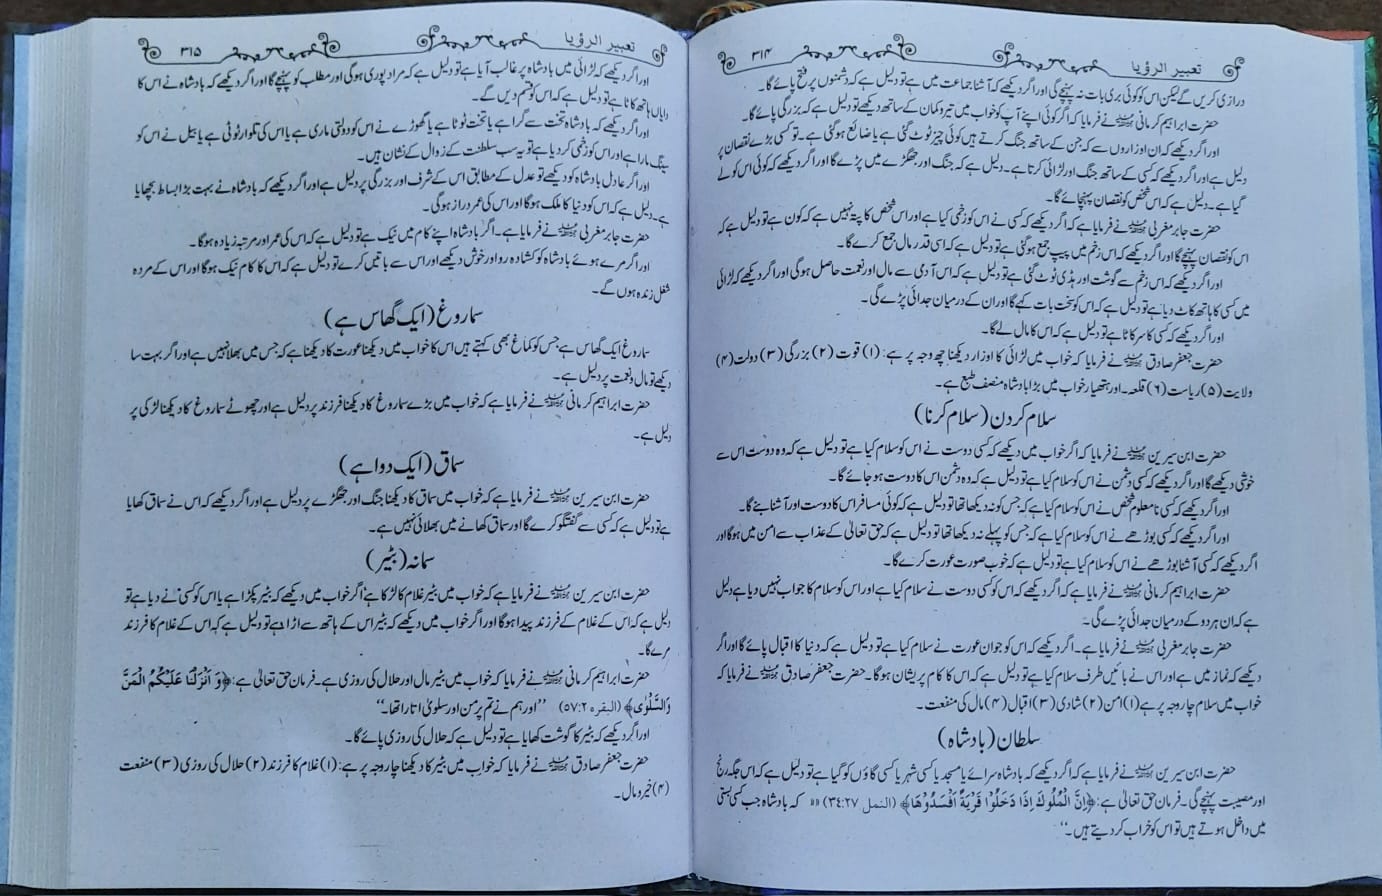 تعبیر الرؤیا ۳۱۴
درازی کریں گے لیکن اس کو کوئی بری بات نہ پہنچے گی اور اگر دیکھے کہ آشنا جماعت میں ہے تو دلیل ہے کہ دشمنوں پر فتح پائے گا۔
حضرت ابراہیم کرمانی رحمۃ اللہ علیہ نے فرمایا کہ اگر کوئی اپنے آپ کو خواب میں تیر و کمان کے ساتھ دیکھے تو دلیل ہے کہ بزرگی پائے گا۔
اور اگر دیکھے کہ ان اوزاروں سے کہ جن کے ساتھ جنگ کرتے ہیں کوئی چیز ٹوٹ گئی ہے یا ضائع ہو گئی ہے۔ تو کسی بڑے نقصان پر
دلیل ہے اور اگر دیکھے کہ کسی کے ساتھ جنگ اور لڑائی کرتا ہے۔ دلیل ہے کہ جنگ اور جھگڑے میں پڑے گا اور اگر دیکھے کہ کوئی اس کو لے
گیا ہے۔ دلیل ہے کہ اس شخص کو نقصان پہنچائے گا۔
حضرت جابر مغربی رحمۃ اللہ علیہ نے فرمایا ہے کہ اگر دیکھے کہ کسی نے اس کو زخمی کیا ہے اور اس شخص کا پتہ نہیں ہے کہ کون ہے تو دلیل ہے کہ
اس کو نقصان پہنچے گا اور اگر دیکھے کہ اس زخم میں پیپ جمع ہو گئی ہے تو دلیل ہے کہ اسی قدر مال جمع کرے گا۔
اور اگر دیکھے کہ اس زخم سے گوشت اور ہڈی ٹوٹ گئی ہے تو دلیل ہے کہ اس آدمی سے مال اور نعمت حاصل ہوگی اور اگر دیکھے کہ لڑائی
میں کسی کا ہاتھ کاٹ دیا ہے تو دلیل ہے کہ اس کو سخت بات کہے گا اور ان کے درمیان جدائی پڑے گی۔
اور اگر دیکھے کہ کسی کا سر کاٹا ہے تو دلیل ہے کہ اس کا مال لے گا۔
حضرت جعفر صادق رحمۃ اللہ علیہ نے فرمایا کہ خواب میں لڑائی کا اوزار دیکھنا چھ وجہ پر ہے: (۱) قوت (۲) بزرگی (۳) دولت (۴)
ولایت (۵) ریاست (۶) قلعہ۔ اور ہتھیار خواب میں بڑا بادشاہ منصف طبع ہے۔
سلام کردن (سلام کرنا)
حضرت ابن سیرین رحمۃ اللہ علیہ نے فرمایا کہ اگر خواب میں دیکھے کہ کسی دوست نے اس کو سلام کیا ہے تو دلیل ہے کہ وہ دوست اس سے
خوشی دیکھے گا اور اگر دیکھے کہ کسی دشمن نے اس کو سلام کیا ہے تو دلیل ہے کہ وہ دشمن اس کا دوست ہو جائے گا۔
اور اگر دیکھے کہ کسی نامعلوم شخص نے اس کو سلام کیا ہے کہ جس کو نہ دیکھا تھا تو دلیل ہے کہ کوئی مسافر اس کا دوست اور آشنا بنے گا۔
اور اگر دیکھے کہ کسی بوڑھے نے اس کو سلام کیا ہے کہ جس کو پہلے نہ دیکھا تھا تو دلیل ہے کہ حق تعالیٰ کے عذاب سے امن میں ہوگا اور
اگر دیکھے کہ کسی آشنا بوڑھے نے اس کو سلام کیا ہے تو دلیل ہے کہ خوب صورت عورت کرے گا۔
حضرت ابراہیم کرمانی رحمۃ اللہ علیہ نے فرمایا ہے کہ اگر دیکھے کہ اس کو کسی دوست نے سلام کیا ہے اور اس کو سلام کا جواب نہیں دیا ہے دلیل
ہے کہ ان ہر دو کے درمیان جدائی پڑے گی۔
حضرت جابر مغربی رحمۃ اللہ علیہ نے فرمایا ہے۔ اگر دیکھے کہ اس کو جوان عورت نے سلام کیا ہے تو دلیل ہے کہ دنیا کا اقبال پائے گا اور اگر
دیکھے کہ نماز میں ہے اور اس نے بائیں طرف سلام کیا ہے تو دلیل ہے کہ اس کا کام پریشان ہوگا۔ حضرت جعفر صادق رحمۃ اللہ علیہ نے فرمایا کہ
خواب میں سلام چار وجہ پر ہے (۱) امن (۲) شادی (۳) اقبال (۴) مال کی منفعت۔
سلطان (بادشاہ)
حضرت ابن سیرین رحمۃ اللہ علیہ نے فرمایا ہے کہ اگر دیکھے کہ بادشاہ سرائے یا مسجد یا کسی شہر یا کسی گاؤں کو گیا ہے تو دلیل ہے کہ اس جگہ رنج
اور مصیبت پہنچے گی۔ فرمان حق تعالیٰ ہے: ﴿اِنَّ الْمُلُوْكَ اِذَا دَخَلُوْا قَرْيَةً اَفْسَدُوْهَا﴾ (النمل ۳۴:۲۷) ‘‘ کہ بادشاہ جب کسی بستی
میں داخل ہوتے ہیں تو اس کو خراب کر دیتے ہیں۔‘‘
تعبیر الرؤیا ۳۱۵
اور اگر دیکھے کہ لڑائی میں بادشاہ پر غالب آیا ہے تو دلیل ہے کہ مراد پوری ہوگی اور مطلب کو پہنچے گا اور اگر دیکھے کہ بادشاہ نے اس کا
دایاں ہاتھ کاٹا ہے تو دلیل ہے کہ اس کو قسم دیں گے۔
اور اگر دیکھے کہ بادشاہ تخت سے گرا ہے یا تخت ٹوٹا ہے یا گھوڑے نے اس کو دولتی ماری ہے یا اس کی تلوار ٹوٹی ہے یا بیل نے اس کو
سینگ مارا ہے اور اس کو زخمی کر دیا ہے تو یہ سب سلطنت کے زوال کے نشان ہیں۔
اور اگر عادل بادشاہ کو دیکھے تو عدل کے مطابق اس کے شرف اور بزرگی پر دلیل ہے اور اگر دیکھے کہ بادشاہ نے بہت بڑا بساط بچھایا
ہے۔ دلیل ہے کہ اس کو دنیا کا ملک ہوگا اور اس کی عمر دراز ہوگی۔
حضرت جابر مغربی رحمۃ اللہ علیہ نے فرمایا ہے۔ اگر بادشاہ اپنے کام میں نیک ہے تو دلیل ہے کہ اس کی عمر اور مرتبہ زیادہ ہوگا۔
اور اگر مرے ہوئے بادشاہ کو کشادہ رو اور خوش دیکھے اور اس سے باتیں کرے تو دلیل ہے کہ اس کا کام نیک ہوگا اور اس کے مردہ
شغل زندہ ہوں گے۔
سماروغ (ایک گھاس ہے)
سماروغ ایک گھاس ہے جس کو کماغ بھی کہتے ہیں اس کا خواب میں دیکھنا عورت کا دیکھنا ہے کہ جس میں بھلا نہیں ہے اور اگر بہت سا
دیکھے تو مال و نعمت پر دلیل ہے۔
حضرت ابراہیم کرمانی رحمۃ اللہ علیہ نے فرمایا ہے کہ خواب میں بڑے سماروغ کا دیکھنا فرزند پر دلیل ہے اور چھوٹے سماروغ کا دیکھنا لڑکی پر
دلیل ہے۔
سماق (ایک دوا ہے)
حضرت ابن سیرین رحمۃ اللہ علیہ نے فرمایا ہے کہ خواب میں سماق کا دیکھنا جنگ اور جھگڑے پر دلیل ہے اور اگر دیکھے کہ اس نے سماق کھایا
ہے تو دلیل ہے کہ کسی سے گفتگو کرے گا اور سماق کھانے میں بھلائی نہیں ہے۔
سمانہ (بٹیر)
حضرت ابن سیرین رحمۃ اللہ علیہ نے فرمایا ہے کہ خواب میں بٹیر غلام کا لڑکا ہے اگر خواب میں دیکھے کہ بٹیر پکڑا ہے یا اس کو کسی نے دیا ہے تو
دلیل ہے کہ اس کے غلام کے فرزند پیدا ہوگا اور اگر خواب میں دیکھے کہ بٹیر اس کے ہاتھ سے اڑا ہے تو دلیل ہے کہ اس کے غلام کا فرزند
مرے گا۔
حضرت ابراہیم کرمانی رحمۃ اللہ علیہ نے فرمایا کہ خواب میں بٹیر مال اور حلال کی روزی ہے۔ فرمان حق تعالیٰ ہے: ﴿وَ اَنْزَلْنَا عَلَيْكُمُ الْمَنَّ
وَالسَّلْوٰى﴾ (البقرہ ۵۷:۲) ‘‘اور ہم نے تم پر من اور سلویٰ اتارا تھا۔‘‘
اور اگر دیکھے کہ بٹیر کا گوشت کھایا ہے تو دلیل ہے کہ حلال کی روزی پائے گا۔
حضرت جعفر صادق رحمۃ اللہ علیہ نے فرمایا کہ خواب میں بٹیر کا دیکھنا چار وجہ پر ہے: (۱) غلام کا فرزند (۲) حلال کی روزی (۳) منفعت
(۴) خیر و مال۔